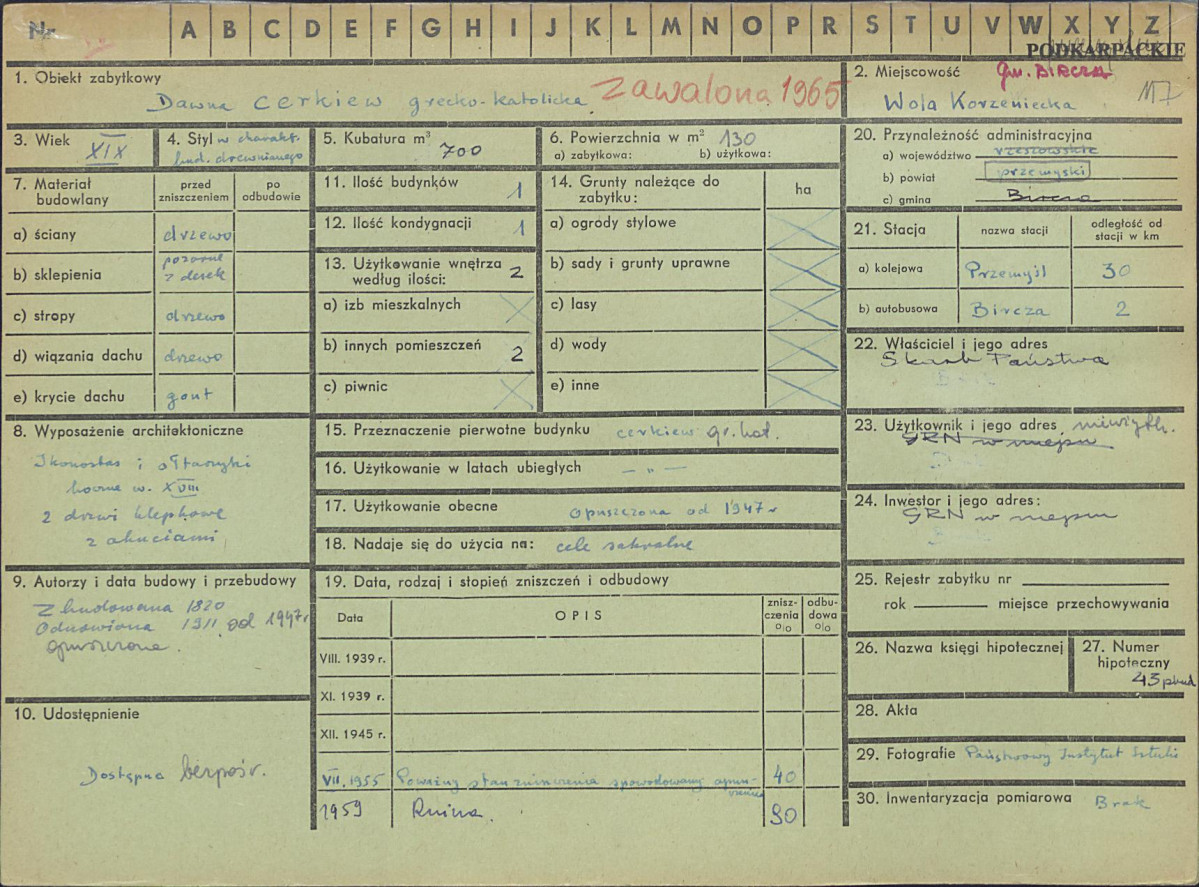 Nr A B C D E F G H I J K L M N O P R S T U V W X Y Z
PODKARPACKIE
1. Obiekt zabytkowy
Dawna cerkiew grecko-katolicka
Zawalona 1965
2. Miejscowość
gm. BIRCZA
Wola Korzeniecka
3. Wiek
XIX
4. Styl w charakt.
bud. drewnianego
5. Kubatura m³
700
6. Powierzchnia w m² 130
a) zabytkowa: b) użytkowa:
20. Przynależność administracyjna
a) województwo rzeszowskie
b) powiat przemyski
c) gmina Bircza
7. Materiał budowlany
przed zniszczeniem
po odbudowie
a) ściany drzewo
b) sklepienia pozorne z desek
c) stropy drzewo
d) wiązania dachu drzewo
e) krycie dachu gont
11. Ilość budynków 1
12. Ilość kondygnacji 1
13. Użytkowanie wnętrza według ilości: 2
a) izb mieszkalnych
b) innych pomieszczeń 2
c) piwnic
14. Grunty należące do zabytku:
ha
a) ogrody stylowe
b) sady i grunty uprawne
c) lasy
d) wody
e) inne
21. Stacja
nazwa stacji
odległość od stacji w km
a) kolejowa Przemyśl 30
b) autobusowa Bircza 2
22. Właściciel i jego adres
Skarb Państwa
8. Wyposażenie architektoniczne
Ikonostas i ołtarzyki
boczne w. XVIII
2 drzwi klepkowe
z okuciami
15. Przeznaczenie pierwotne budynku cerkiew gr. kat.
16. Użytkowanie w latach ubiegłych — „ —
17. Użytkowanie obecne opuszczona od 1947 r
18. Nadaje się do użycia na: cele sakralne
23. Użytkownik i jego adres
GRN w miejscu
24. Inwestor i jego adres:
GRN w miejscu
9. Autorzy i data budowy i przebudowy
Zbudowana 1820
Odnowiona 1911 od 1947r
opuszczona.
19. Data, rodzaj i stopień zniszczeń i odbudowy
Data
OPIS
zniszczenia o/o
odbudowa o/o
VIII. 1939 r.
XI. 1939 r.
XII. 1945 r.
VII. 1955 Poważny stan zniszczenia spowodowany opuszczenia 40
1959 Ruina. 90
25. Rejestr zabytku nr
rok miejsce przechowywania
26. Nazwa księgi hipotecznej
27. Numer hipoteczny
43 pbud
10. Udostępnienie
Dostępna bezpośr.
28. Akta
29. Fotografie Państwowy Instytut Sztuki
30. Inwentaryzacja pomiarowa Brak